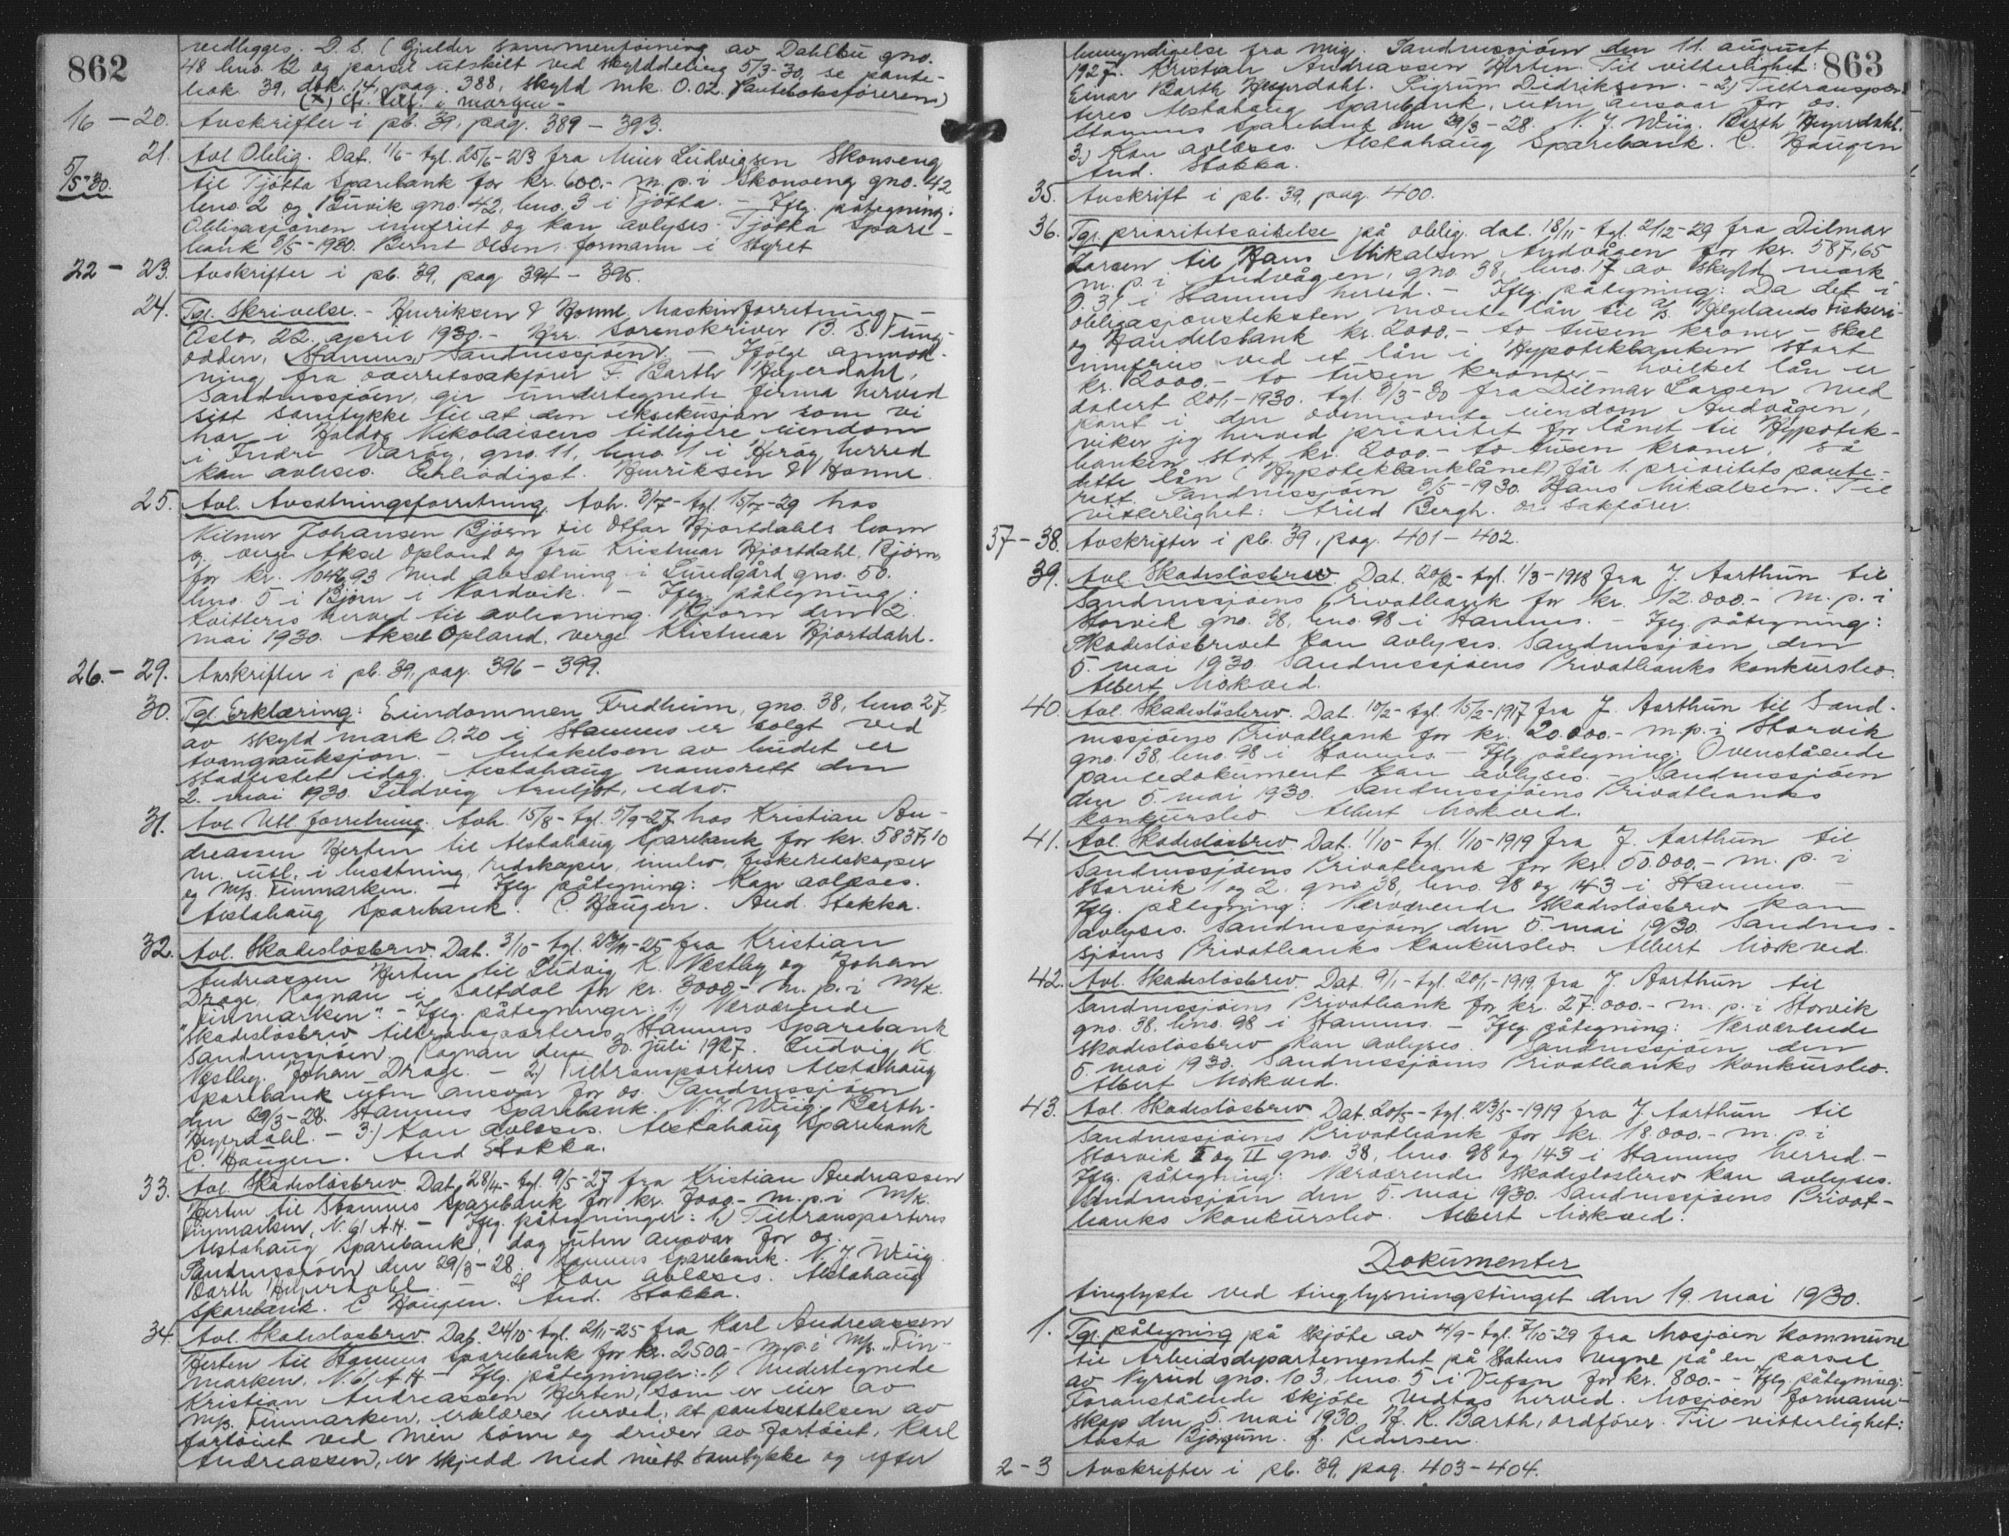 862
vedlegges. D. S. (Gjelder sammenføining av Dahlbu gno.
48 bno. 12 og parsel utskilt ved skylddeling 5/3-30, se pante-
bok 39, dok. 14, pag. 388, skyld mk. 0.02. Pantebokføreren)
16 – 20. Avskrifter i pb. 39, pag. 389 – 393.
5/5-30.
21. Avl. Oblig. Dat. 1/6 - tgl. 25/6-23 fra Ludvigsen Skonseng
til Tjøtta Sparebank for kr. 600.- m. p. i Skonseng gno. 42
bno. 2 og Buvik gno. 42, bno. 3 i Tjøtta. – Iflg. påtegning:
Obligasjonen innfriet og kan avlyses. Tjøtta Spare-
bank 2/5-1930. Bernt Olsen, formann i styret
22 – 23. Avskrifter i pb. 39, pag. 394 – 395.
24. Tgl. Skrivelse. – Henriksen & Honne, Maskinforretning –
Oslo, 22. april 1930. – Hr. Sorenskriver B. S. Tung-
odden, Stamnes Sandnessjøen. – Ifølge anmod-
ning fra overretssakfører F. Barth Heyerdahl,
Sandnessjøen, gir undertegnede firma herved
sitt samtykke til at den eksekusjon som vi
har i Haldor Nikolaisens tidligere eiendom
i Indre Varøy, gno. 11, bno. 1 i Herøy herred
kan avlyses. Ærbødigst. Henriksen & Honne.
25. Avl. Avsetningsforretning. Avh. 3/7 - tgl. 15/7-29 hos
Vilmer Johansen Bjørn til Ottar Hjortdahls barn
v. verge Aksel Opland og fru Kristmar Hjortdahl, Bjørn,
for kr. 1042,93 med avsetning i Lundgård gno. 50.
bno. 5 i Bjørn i Nordvik. – Iflg. påtegning:
Kvitteres herved til avlesning. Bjørn den 2.
mai 1930. Aksel Opland, verge. Kristmar Hjortdahl.
26. – 29. Avskrifter i pb. 39, pag. 396 – 399.
30. Tgl. Erklæring: Eiendommen Fredheim, gno. 38, bno. 27,
av skyld mark 0.20 i Stamnes er solgt ved
tvangsauksjon. – Antakelsen av budet er
stadfestet idag. Alstahaug namsrett den
2. mai 1930. Ludvig edsv.
31. Avl. Utl. forretning. Avh. 15/8 - tgl. 5/9-27 hos Kristian An-
dreassen Herten til Alstahaug Sparebank for kr. 5837,10
m. utl. i besetning, redskaper, innbo, fiskeredskaper
og m/k. Finmarken. – Iflg. påtegning: Kan avleses.
Alstahaug Sparebank. C. Haugen. And. Stokka.
32. Avl. Skadesløsbrev. Dat. 3/10 - tgl. 23/11-25 fra Kristian
Andreassen Herten til Ludvig K. Vestby og Johan
Drage, Rognan i Saltdal for kr. 3000,- m. p. i M/k.
"Finmarken". – Iflg. påtegninger: 1) Nærværende
skadesløsbrev tiltransporteres Stamnes Sparebank
Sandnessjøen. Rognan den 30. juli 1927. Ludvig K.
Vestby. Johan Drage. – 2) Tiltransporteres Alstahaug
Sparebank uten ansvar for os. Sandnessjøen
den 29/3-28. Stamnes Sparebank. N. J. Wiig. Barth-
Heyerdahl. – 3.) Kan avleses. Alstahaug Sparebank
C. Haugen. And Stokka.
33. Avl. Skadesløsbrev. Dat. 28/4 - tgl. 9/5-27 fra Kristian Andreassen
Herten til Stamnes Sparebank for kr. 7000,- m. p. i M/k.
Finmarken, N. 61 A.H. – Iflg. påtegninger: 1) Tiltransporteres
Alstahaug Sparebank, dog uten ansvar for os.
Sandnessjøen den 29/3-28. Stamnes Sparebank. N. J. Wiig.
Barth Heyerdahl – 2) Kan avleses. Alstahaug
Sparebank. C Haugen. And. Stokka.
34. Avl. Skadesløsbrev. Dat. 24/10 - tgl. 2/11-25 fra Karl Andreassen
Herten til Stamnes Sparebank for kr. 2500.- m.p. i M/k. "Fin-
marken. N. 61 A H – Iflg. påtegninger: 1) Undertegnede
Kristian Andreassen Herten, som er eier av
M/k. Finmarken, erklærer herved, at pantsettelsen av
fartøiet ved min sønn og driver av fartøiet, Karl
Andreassen, er skjedd med mitt samtykke og efter
863
bemyndigelse fra mig. Sandnessjøen den 11. august
1927. Kristian Andreassen Herten. Til vitterlighet:
Einar Barth Heyerdahl. Sigrun Didriksen. – 2) Tiltranspor-
teres Alstahaug Sparebank, uten ansvar for os.
Stamnes Sparebank den 29/3-28. N. J. Wiig. Barth Heyerdahl.
3.) Kan avleses. Alstahaug Sparebank. C. Haugen
And. Stokka.
35. Avskrift i pb. 39, pag. 400.
36. Tgl. prioritetsvikelse på oblig. dat. 18/11 - tgl. 2/12-29 fra Dilmar
Larsen til Hans Mikalsen Andvågen for kr. 587,65
m. p. i Andvågen, gno. 38, bno. 17 av skyld mark
0.31 i Stamnes herred. – Iflg. påtegning: Da det i
obligasjonsteksten nevnte lån til A/S Helgelands Fiskeri-
og Handelsbank kr. 2000.- to tusen kroner – skal
innfries ved et lån i Hypotekbanken stort
kr. 2000.- to tusen kroner – hvilket lån er
datert 20/1-1930, tgl. 3/3-30 fra Dilmar Larsen med
pant i den ovennevnte eiendom Andvågen,
viker jeg herved prioritet for lånet til Hypotek-
banken stort kr. 2000.- to tusen kroner, så
dette lån (Hypotekbanklånet) får 1. prioritets pante-
rett. Sandnessjøen 3/5-1930. Hans Mikalsen. Til
vitterlighet: Arild Bergh. o.r. sakfører.
37 – 38. Avskrifter i pb. 39, pag. 401 – 402.
39. Avl. Skadesløsbrev. Dat. 20/2 - tgl. 1/3-1918 fra J. Aarthun til
Sandnessjøens Privatbank for kr. 12.000.- m. p. i
Storvik gno. 38, bno. 98 i Stamnes. – Iflg. påtegning:
Skadesløsbrevet kan avlyses. Sandnessjøen den
5. mai 1930. Sandnessjøens Privatbanks konkursbo.
Albert Mokved.
40. Avl. Skadesløsbrev. Dat. 10/2 - tgl. 15/2-1917 fra J. Aarthun til Sand-
nessjøens Privatbank for kr. 20.000.- m.p. i Storvik
gno. 38, bno. 98 i Stamnes – Iflg. påtegning: Ovenstående
pantedokument kan avlyses. – Sandnessjøen
den 5. mai 1930. Sandnessjøens Privatbanks
konkursbo. Albert Mokved.
41. Avl. Skadesløsbrev. Dat. 1/10 - tgl. 1/10-1919 fra J. Aarthun til
Sandnessjøens Privatbank for kr. 50.000,- m. p. i
Storvik 1 og 2. gno. 38, bno. 98 og 143 i Stamnes. –
Iflg. påtegning: Nærværende skadesløsbrev kan
avlyses. Sandnessjøen den 5. mai 1930. Sandnes-
sjøens Privatbanks konkursbo. Albert Mokved.
42. Avl. Skadesløsbrev. Dat. 9/1 - tgl. 20/1-1919, fra J. Aarthun til
Sandnessjøens Privatbank for kr. 27.000.- m. p. i Storvik
gno. 38. bno. 98 i Stamnes – Iflg. påtegning: Nærværende
skadesløsbrev kan avlyses. Sandnessjøen den
5. mai 1930. Sandnessjøens Privatbanks konkursbo.
Albert Mokved.
43. Avl. Skadesløsbrev. Dat. 20/5 - tgl. 23/5-1919 fra J. Aarthun til
Sandnessjøens Privatbank for kr. 18.000.- m. p. i
Storvik I og II gno. 38, bno. 98 og 143 i Stamnes herred. –
Iflg. påtegning: Nærværende skadesløsbrev kan avlyses.
Sandnessjøen den 5. mai 1930. Sandnessjøens Privat-
banks konkursbo. Albert Mokved.
Dokumenter
tinglyste ved tinglysningstinget den 19. mai 1930.
1. Tgl. påtegning på skjøte av 4/9 - tgl. 7/10-29 fra Mosjøen kommune
til Arbeidsdepartementet på Statens vegne på en parsel
av Nyrud gno. 103, bno. 5 i Vefsn for kr. 800.- – Iflg. påtegning:
Foranstående skjøte vedtas herved. Mosjøen formann-
skap den 5. mai 1930. K. Barth, ordfører. Til vitterlighet:
Aasta Bjørgum. J. Pedersen.
2 – 3 Avskrifter i pb. 39, pag. 403 – 404.